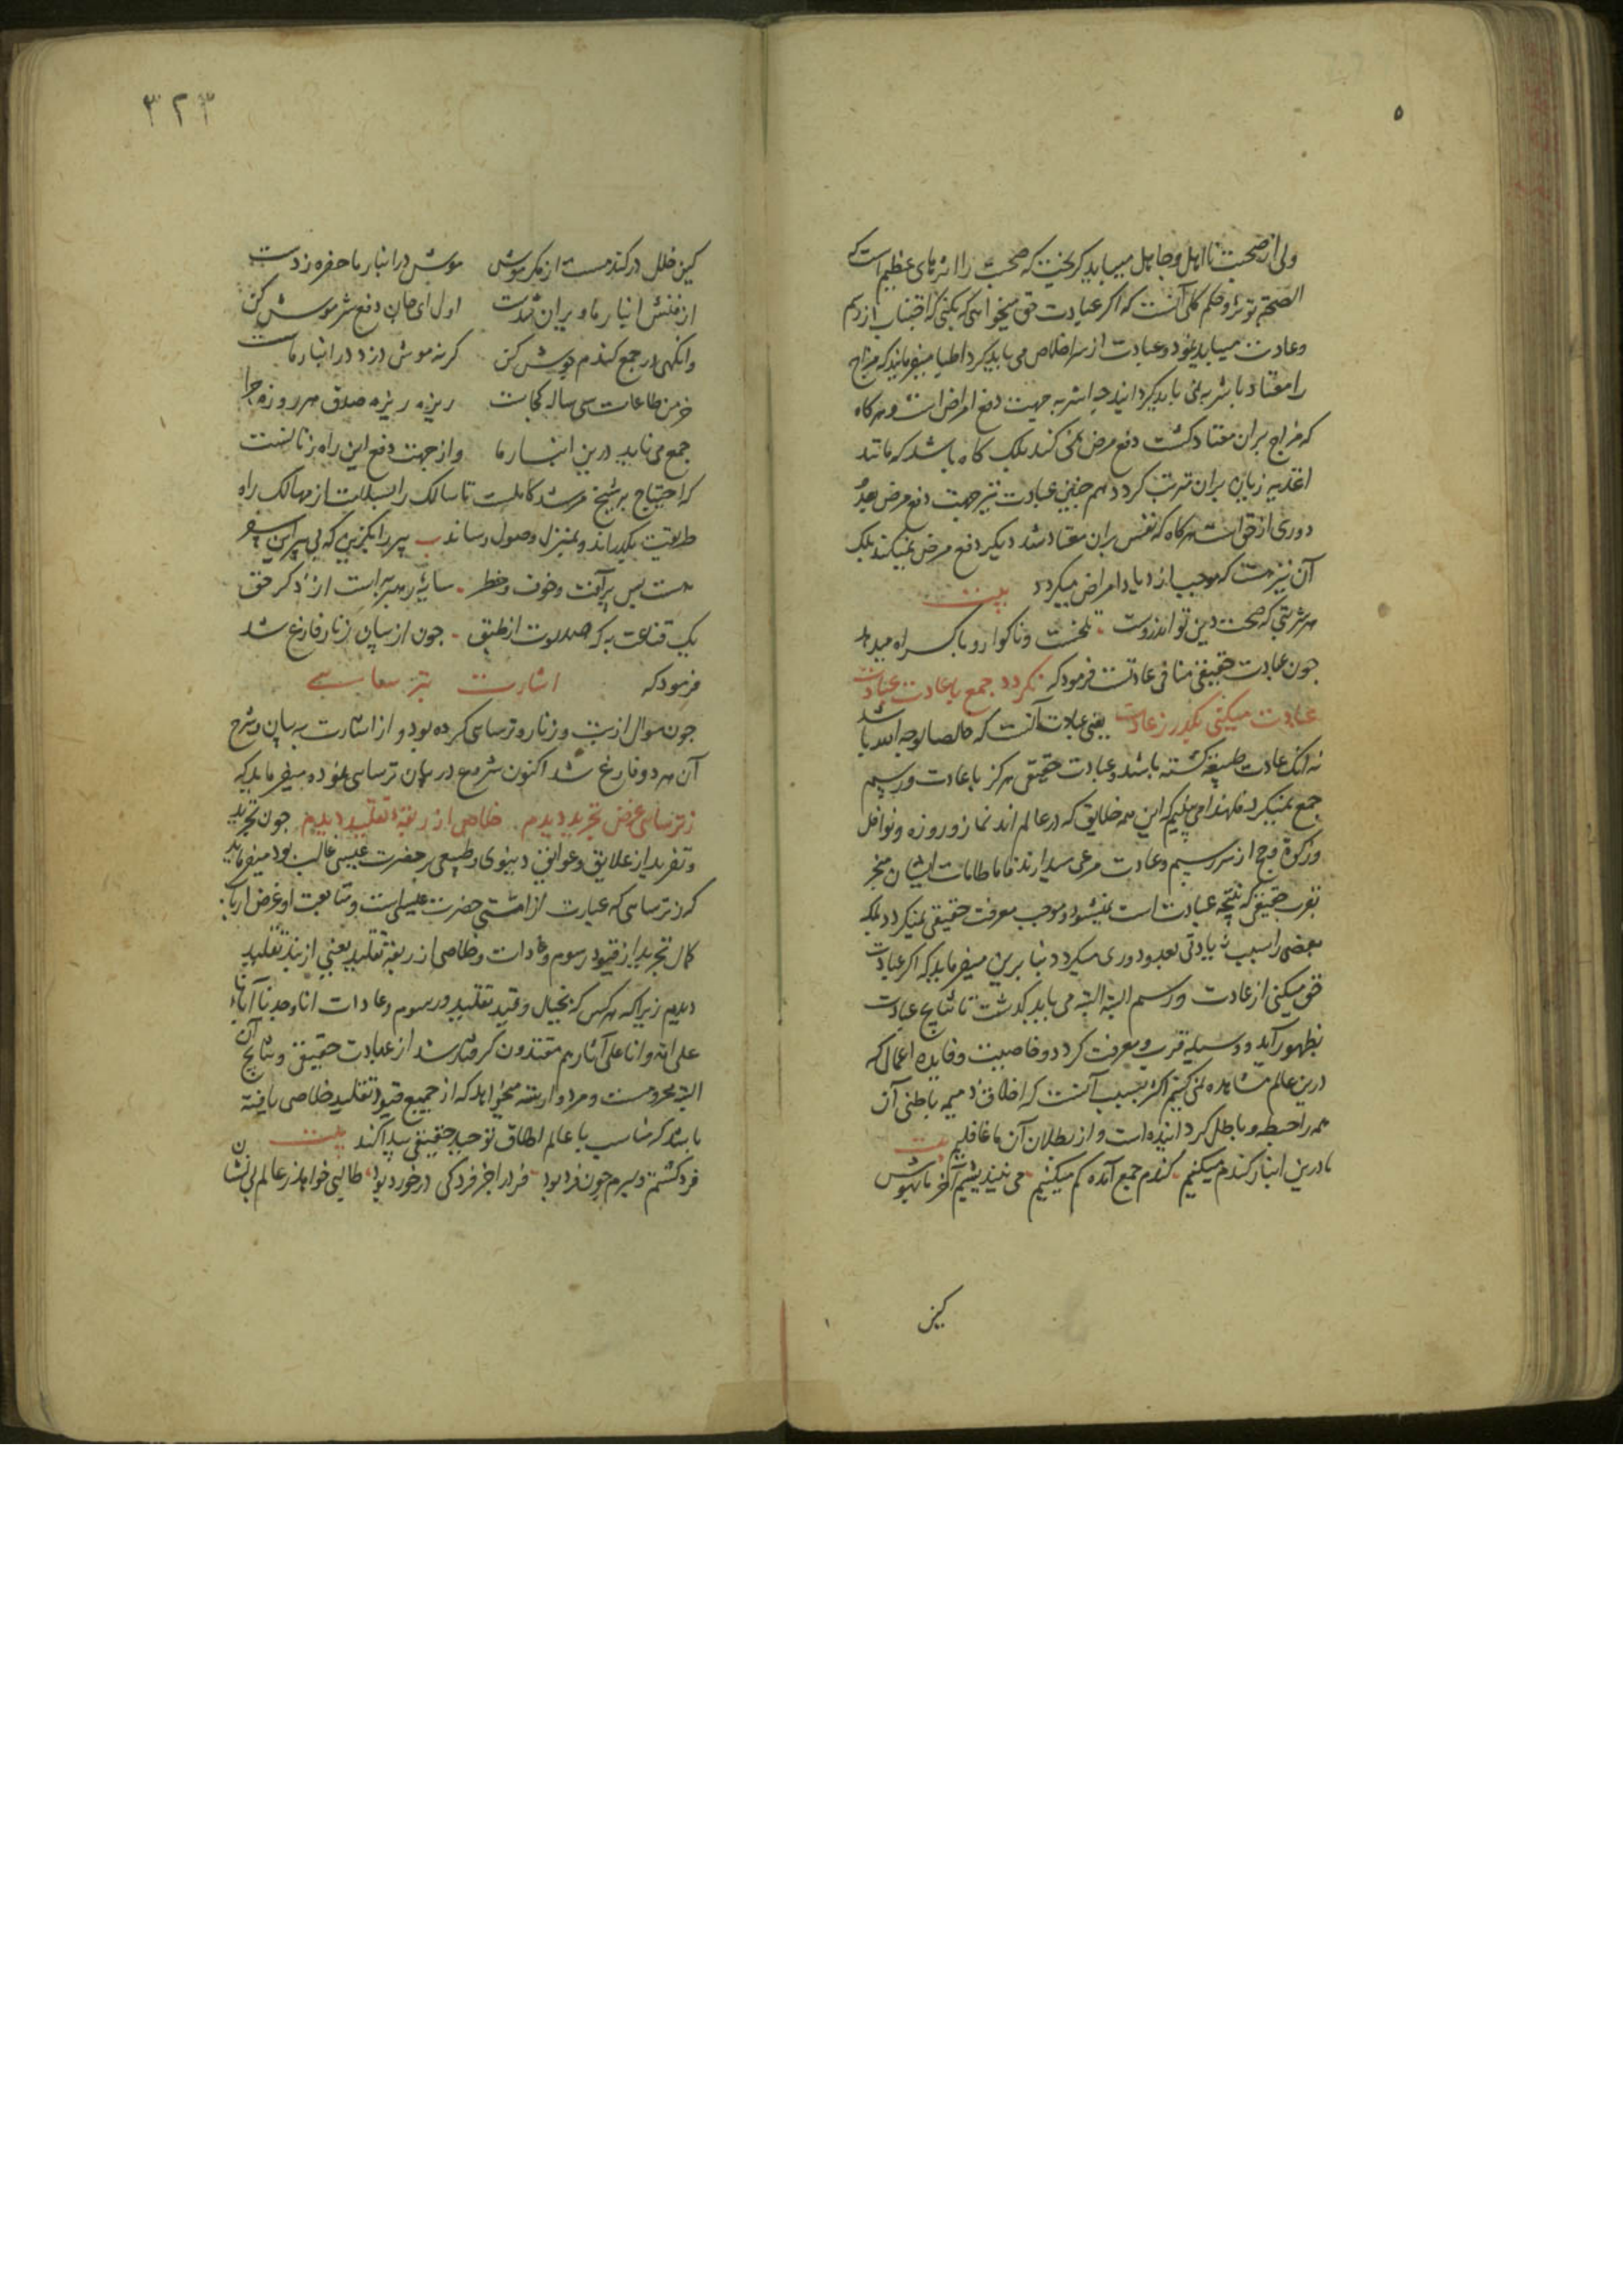 ۵
ولی از صحبت نااهل و جاهل میباید گریخت که صحبت را اثرهای عظیم است که
الصحبة توثر و حکم کلی آنست که اگر عبادت حق میخواهی که بکنی که اجتناب از رسم
و عادت میباید نمود و عبادت از سر اخلاص می باید کرد اطبا میفرمایند که مزاج
را معتاد باشربه نمی باید گردانید چه اشربه جهت دفع امراض است و هرگاه
که مزاج بران معتاد گشت دفع مرض نمی کند بلکه گاه باشد که مانند
اغذیه زیاده بران ترتب گردد همچنین عبادت نیز جهت دفع مرض بعد و
دوری از حق است هرگاه که نفس بران معتاد شد دیگر دفع مرض نمیکند بلکه
آن نیز هست که موجب ازدیاد امراض میگردد بیت
هر شربتی که صحت دین تو اندروست تلخست و ناگوار و باکراه میدهد
چون عبادت حقیقی منافی عادتست فرمود که نگردد جمع با عادت عبادت
عبادت میکنی بگذر ز عادت یعنی عبادت آنست که خالصا لوجه الله باشد
نه آنکه عادت طبیعه گشته باشد و عبادت حقیقی هرگز با عادت و رسم
جمع نمیگردد فلهذا می بینیم که این همه خلایق که در عالم اند نماز و روزه و نوافل
و زکوة و حج از سر رسم و عادت مرعی میدارند فاما طاعات ایشان منجر
بقرب حقیقی که نتیجه عبادت است نمیشود و موجب معرفت حقیقی نمیگردد بلکه
بعضی را سبب زیادتی بعد و دوری میگردد بنا برین میفرماید که اگر عبادت
حق میکنی از عادت و رسم البته البته می باید گذشت تا نتایج عبادت
بظهور آید و وسیله قرب و معرفت گردد و خاصیت و فایده اعمال که
درین عالم مشاهده نمی کنیم اکثر بسبب آنست که اخلاق ذمیمه باطنی آن
همه را حبطه و باطل گردانیده است و از بطلان آن ما غافلیم بیت
ما درین انبار گندم میکنیم گندم جمع آمده گم میکنیم می نیندیشیم آخر ما بهوش
کین
۳۲۳
کین خلل در گندمست از مکر موش موش در انبار ما حفره زدست
از فنش انبار ما ویران شدست اول ای جان دفع شر موش کن
وانگهی در جمع گندم جوش کن گرنه موش دزد در انبار ماست
خرمن طاعات سی ساله کجاست ریزه ریزه صدق هر روزه چرا
جمع می ناید درین انبار ما و از جهت دفع این راه زنانست
که احتیاج بر شیخ مرشد کاملست تا سالک را بسلامت از مهالک راه
طریقت بگذراند و بمنزل وصول رساند بیت پیر را بگزین که بی پیر این سفر
هست بس پر آفت و خوف و خطر سایه رهبر به است از ذکر حق
یک قناعت به که صد لوت از طبق چون از بیان زنار فارغ شد
فرمود که اشارت بترسایی
چون سوال از بت و زنار و ترسایی کرده بود و از اشارت به بیان و شرح
آن هر دو فارغ شد اکنون شروع در بیان ترسایی نموده میفرماید که
ز ترسایی غرض تجرید دیدم خلاص از ربقه تقلید دیدم چون تجرید
و تفرید از علایق و عوایق دنیوی و طبیعی بر حضرت عیسی غالب بود میفرماید
که ز ترسایی که عبارت از امتی حضرت عیسی است و متابعت او غرض ارباب
کمال تجرید از قیود رسوم و عادات و خلاصی از ربقه تقلید یعنی از بند تقلید
دیدم زیرا که هر کس که بخیال و قید تقلید و رسوم و عادات انا وجدنا آباءنا
علی امة و انا علی آثارهم مقتدون گرفتار شد از عبادت حقیقی و نتایج آن
البته محرومست و مرد وارسته میخواهد که از جمیع قیود تقلید خلاصی یافته
باشد که مناسب با عالم اطلاق توحید حقیقی پیدا کند بیت
فرد گشتم دلبرم چون فرد بود فرد را جز فرد کی در خورد بود طالبی خواهد ز عالم بی نشان